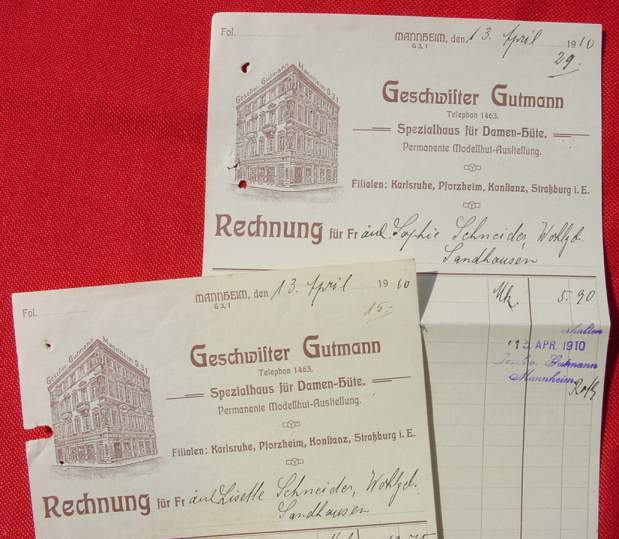 Fol.
MANNHEIM, den 13. April 1910
G 3, 1
29.
Geschwister Gutmann Mannheim G 3.1
Geschwiſter Gutmann
Telephon 1463.
Spezialhaus für Damen-Hüte.
Permanente Modellhut-Ausſtellung.
Filialen: Karlsruhe, Pforzheim, Konſtanz, Straßburg i. E.
Rechnung für Fräul. Sophie Schneider, Wohlgb.
Sandhausen
Mk. 5.90
erhalten
15. APR. 1910
Gutmann
Mannheim
Fol.
MANNHEIM, den 13. April 1910
G 3, 1
15.
Geschwister Gutmann Mannheim G 3.1
Geschwiſter Gutmann
Telephon 1463.
Spezialhaus für Damen-Hüte.
Permanente Modellhut-Ausſtellung.
Filialen: Karlsruhe, Pforzheim, Konſtanz, Straßburg i. E.
Rechnung für Fräul. Lisette Schneider, Wohlgb.
Sandhausen